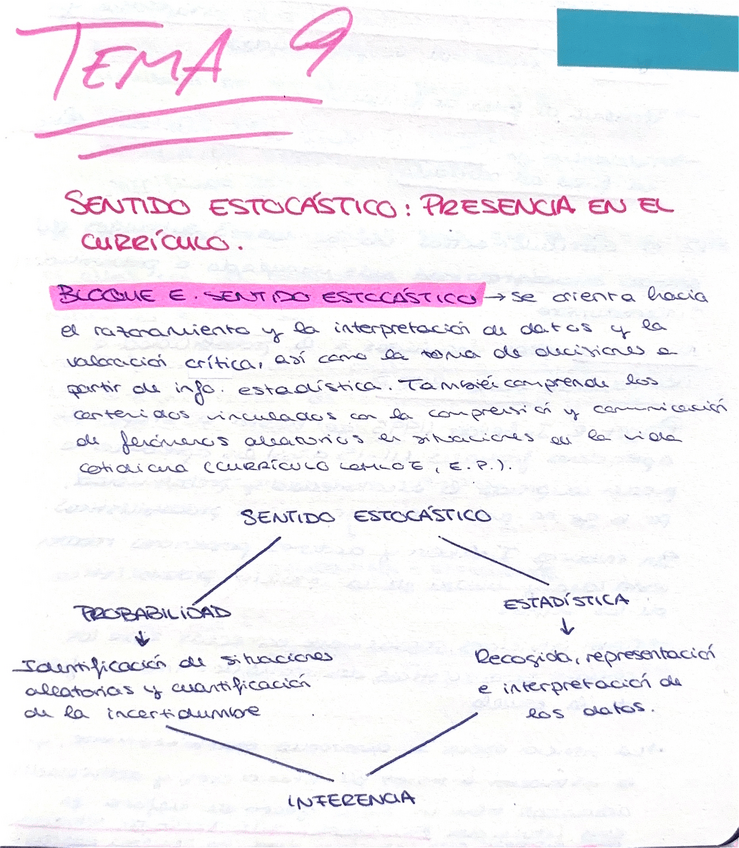 TEMA 9
SENTIDO ESTOCÁSTICO: PRESENCIA EN EL
CURRÍCULO.
BLOQUE E. SENTIDO ESTOCÁSTICO → se orienta hacia
el razonamiento y la interpretación de datos y la
valoración crítica, así como la toma de decisiones a
partir de info. estadística. También comprende los
contenidos vinculados con la comprensión y comunicación
de fenómenos aleatorios en situaciones de la vida
cotidiana (CURRÍCULO LOMLOE, E.P.).
SENTIDO ESTOCÁSTICO
PROBABILIDAD
↓
Identificación de situaciones
aleatorias y cuantificación
de la incertidumbre
ESTADÍSTICA
↓
Recogida, representación
e interpretación de
los datos.
INFERENCIA